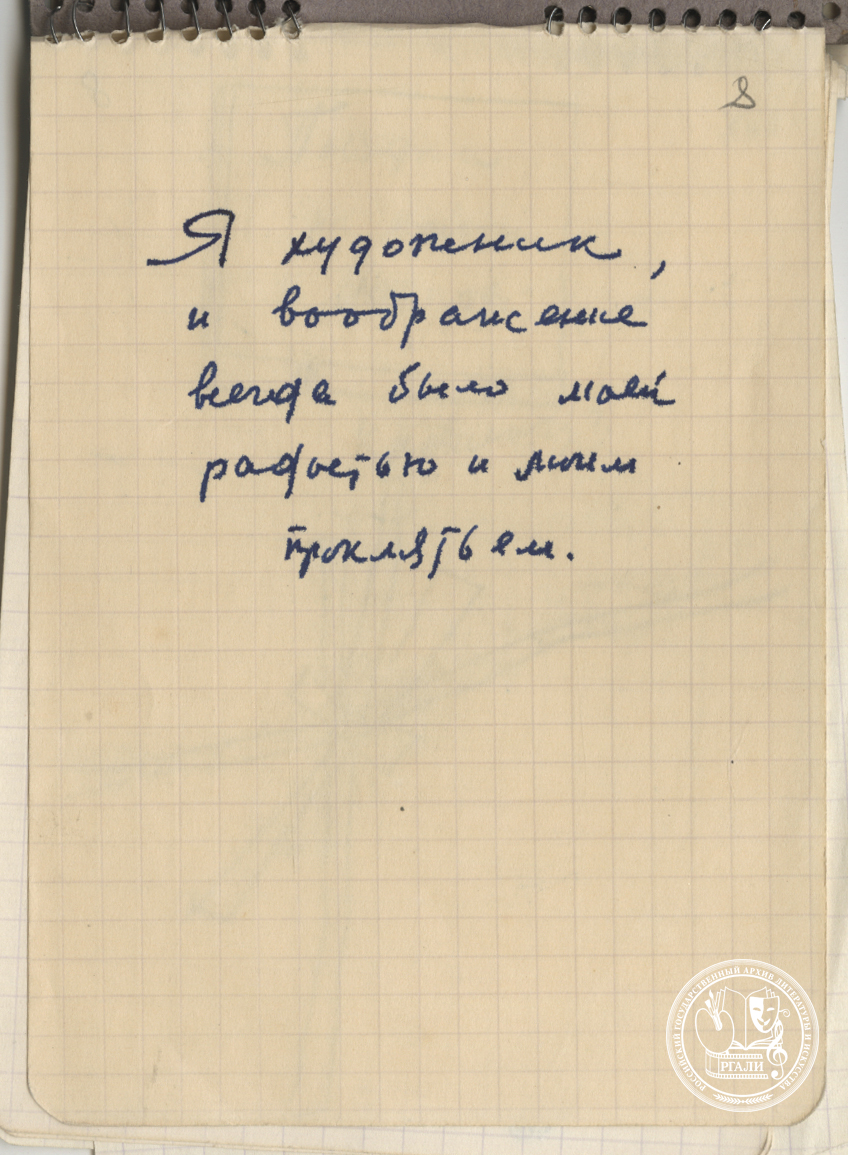 8
Я художник,
и воображение
всегда было моей
радостью и моим
проклятьем.
РОССИЙСКИЙ ГОСУДАРСТВЕННЫЙ АРХИВ ЛИТЕРАТУРЫ И ИСКУССТВА
РГАЛИ